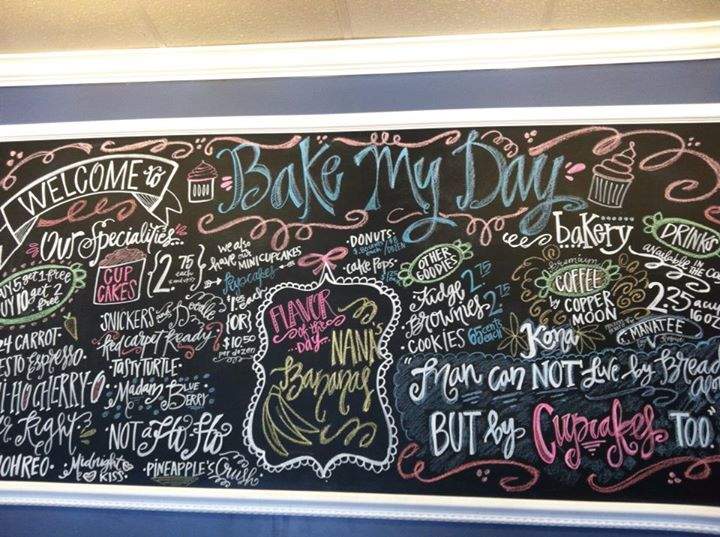 WELCOME to
Bake My Day
bakery
Our Specialities...
get 1 free
10 get 2
free
CUP
CAKES
2.75
each
we also
have
MINI CUPCAKES
Pupcakes
{OR}
$10.50
per dozen
DONUTS
Cake Pops
OTHER
GOODIES
Fudge 2.75
Brownies 2.75
COOKIES 65 cents
each
Premium
COFFEE
by COPPER
MOON
Kona
DRINKS
available in the
2.25
16 oz
MANATEE
SNICKERS and Doodle
Red carpet Ready
TASTY TURTLE
Madam BLUE
BERRY
NOT a Ho Ho
PINEAPPLE'S Crush
24 CARROT
ESTO Espresso
HO CHERRY-O
Right
OHREO
Midnight
KISS
FLAVOR
of the
DAY...
NANA'S
Bananas
"Man can NOT live by Bread
BUT by Cupcakes TOO."